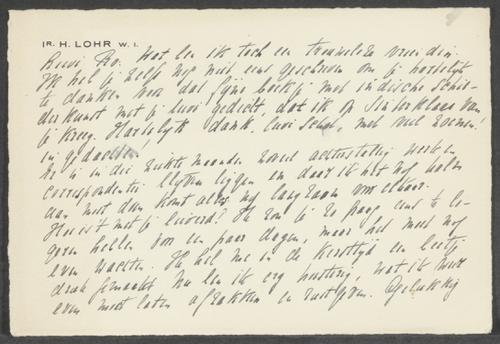 IR. H. LOHR W. I.
Lieve Ro. Wat ben ik toch een trouweloze vriendin.
Ik heb je zelfs nog niet eens geschreven om je hartelijk
te danken voor dat fijne boekje met indische schil-
derkunst met je lieve gedicht, dat ik op Sinterklaas van
je kreeg. Hartelijk dank, lieve schat, met veel zoenen!
in gedachten,
Er is in die ziekte maanden zoveel achterstallig werk en
correspondentie blijven liggen en daar ik het nog halve
dagen moet doen komt alles nog langzaam voor elkaar.
Hoe is't met je lieverd? Ik zou je zo graag eens te lo-
geren hebben voor een paar dagen, maar het moet nog
even wachten. Ik heb me in de kersttijd een beetje
druk gemaakt. Nu ben ik erg hoesterig, wat ik weer
even moet laten afzakken en rust geven. Gelukkig